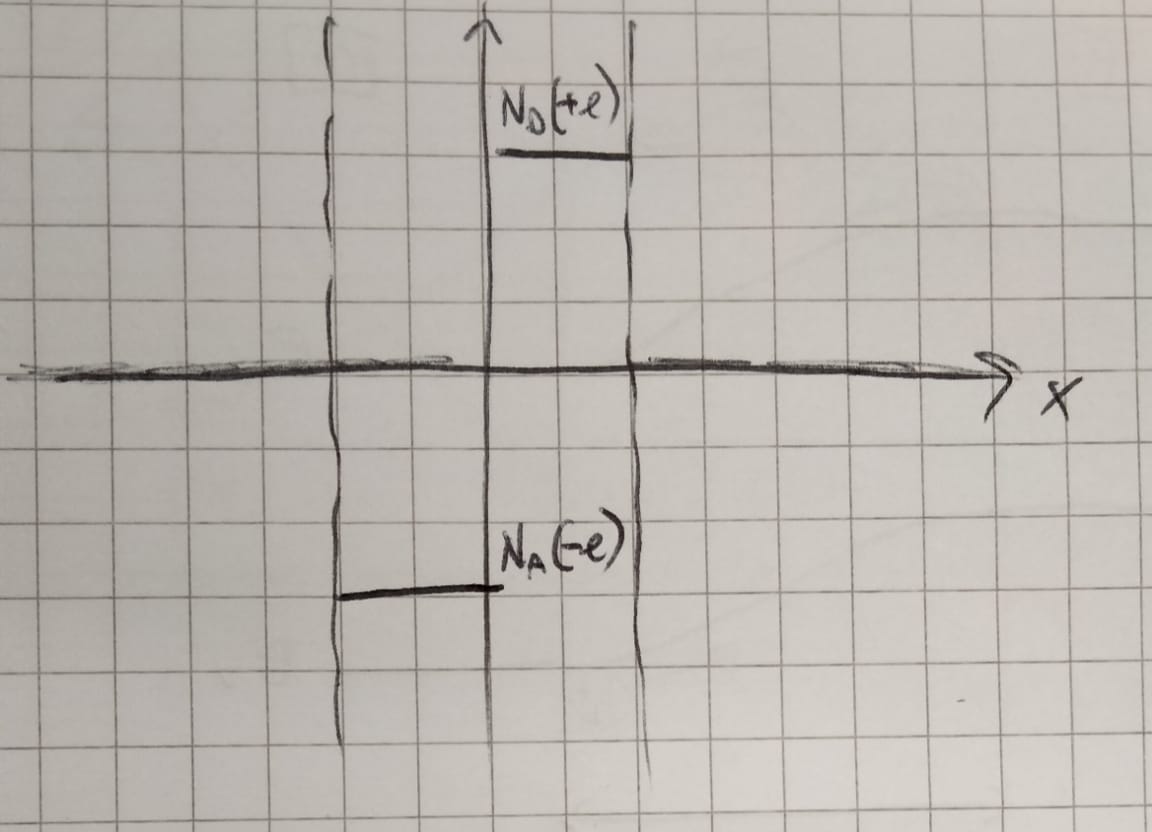 N_D(+e)
x
N_A(-e)